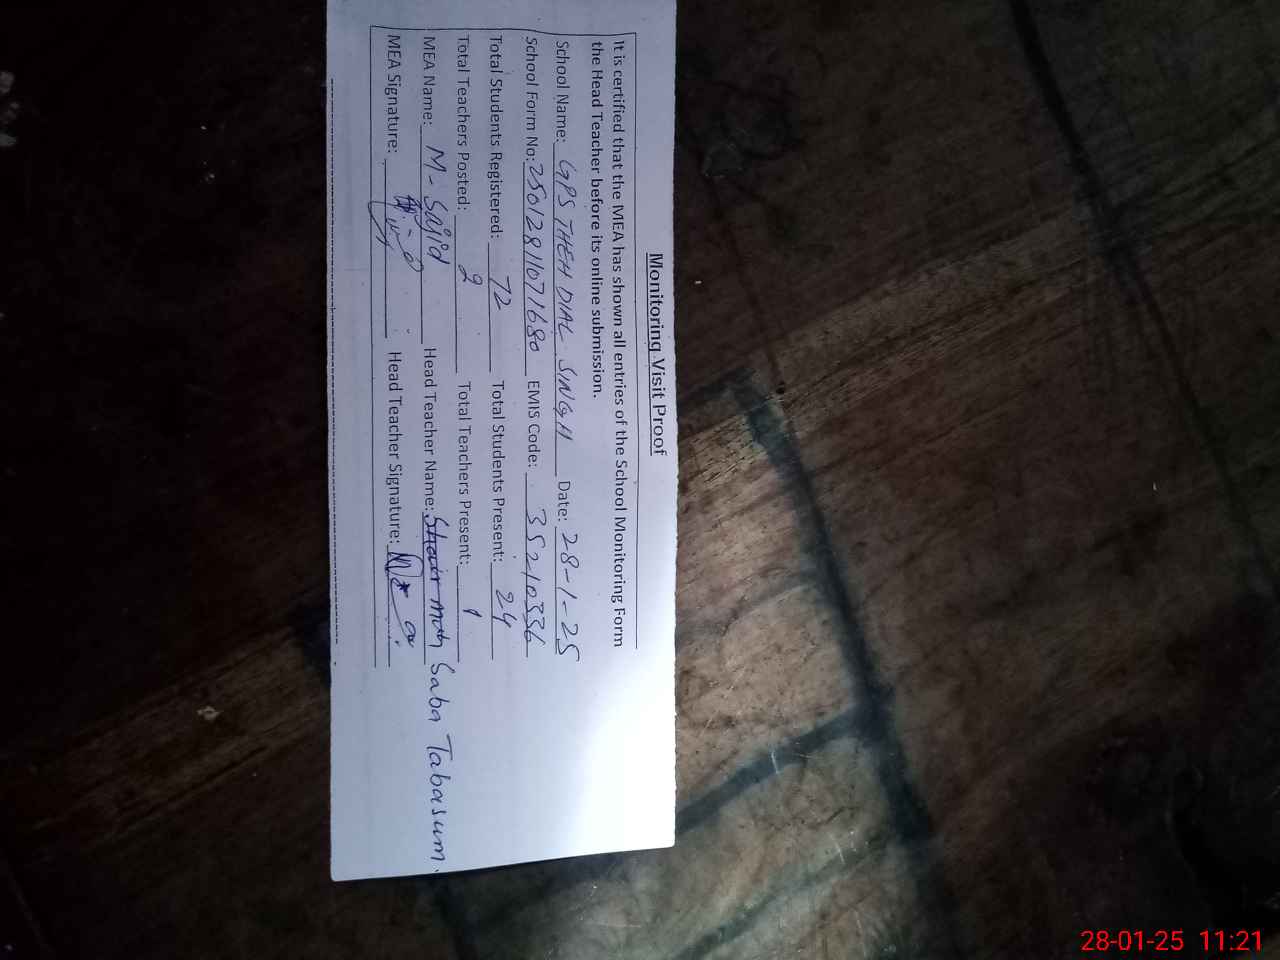 Monitoring Visit Proof
It is certified that the MEA has shown all entries of the School Monitoring Form
the Head Teacher before its online submission.
School Name: GPS THEH DIAL SINGH Date: 28-1-25
School Form No: 25012811071680 EMIS Code: 35210336
Total Students Registered: 72 Total Students Present: 24
Total Teachers Posted: 2 Total Teachers Present: 1
MEA Name: M-Sajid Head Teacher Name: Saba Tabasum.
MEA Signature: Head Teacher Signature:
28-01-25 11:21